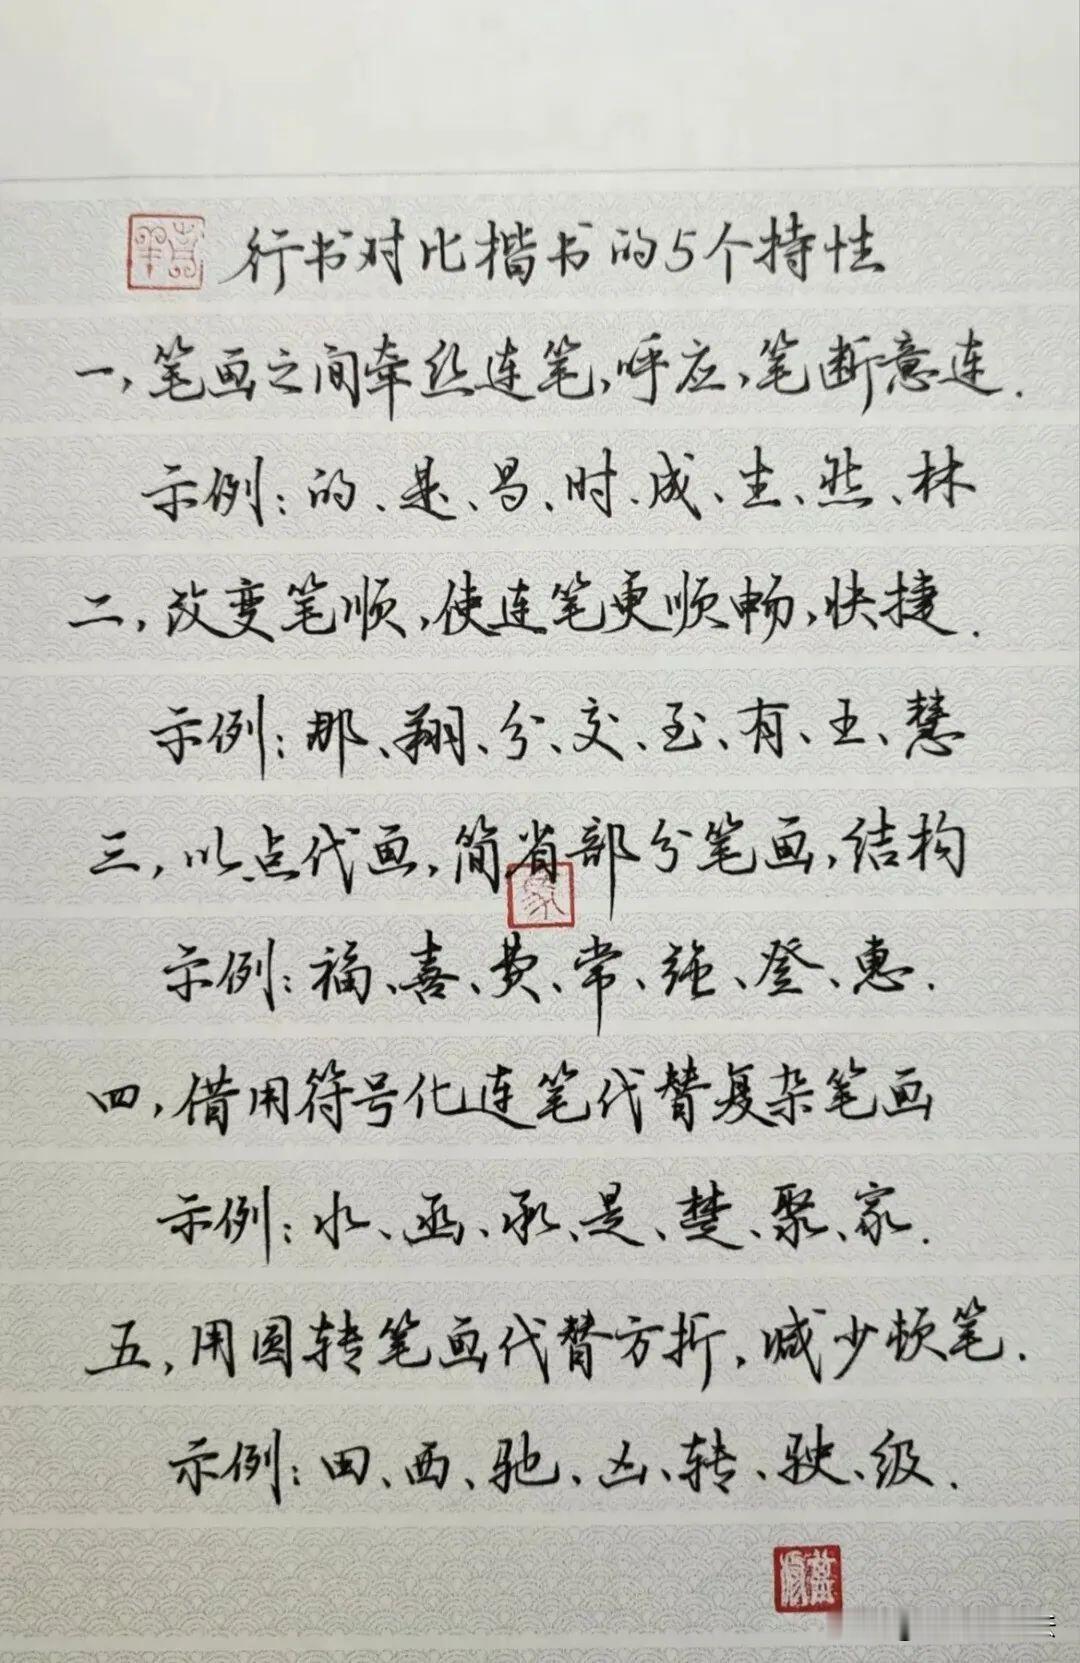 行书对比楷书的5个特性
一,笔画之间牵丝连笔,呼应,笔断意连.
示例:的、是、昌、时、成、生、然、林
二,改变笔顺,使连笔更顺畅,快捷.
示例:那、翔、分、交、至、有、王、慧
三,以点代画,简省部分笔画,结构
示例:福、喜、费、常、强、登、惠.
四,借用符号化连笔代替复杂笔画
示例:水、函、承、是、楚、聚、家.
五,用圆转笔画代替方折,减少顿笔.
示例:田、西、驰、凶、转、驶、级.